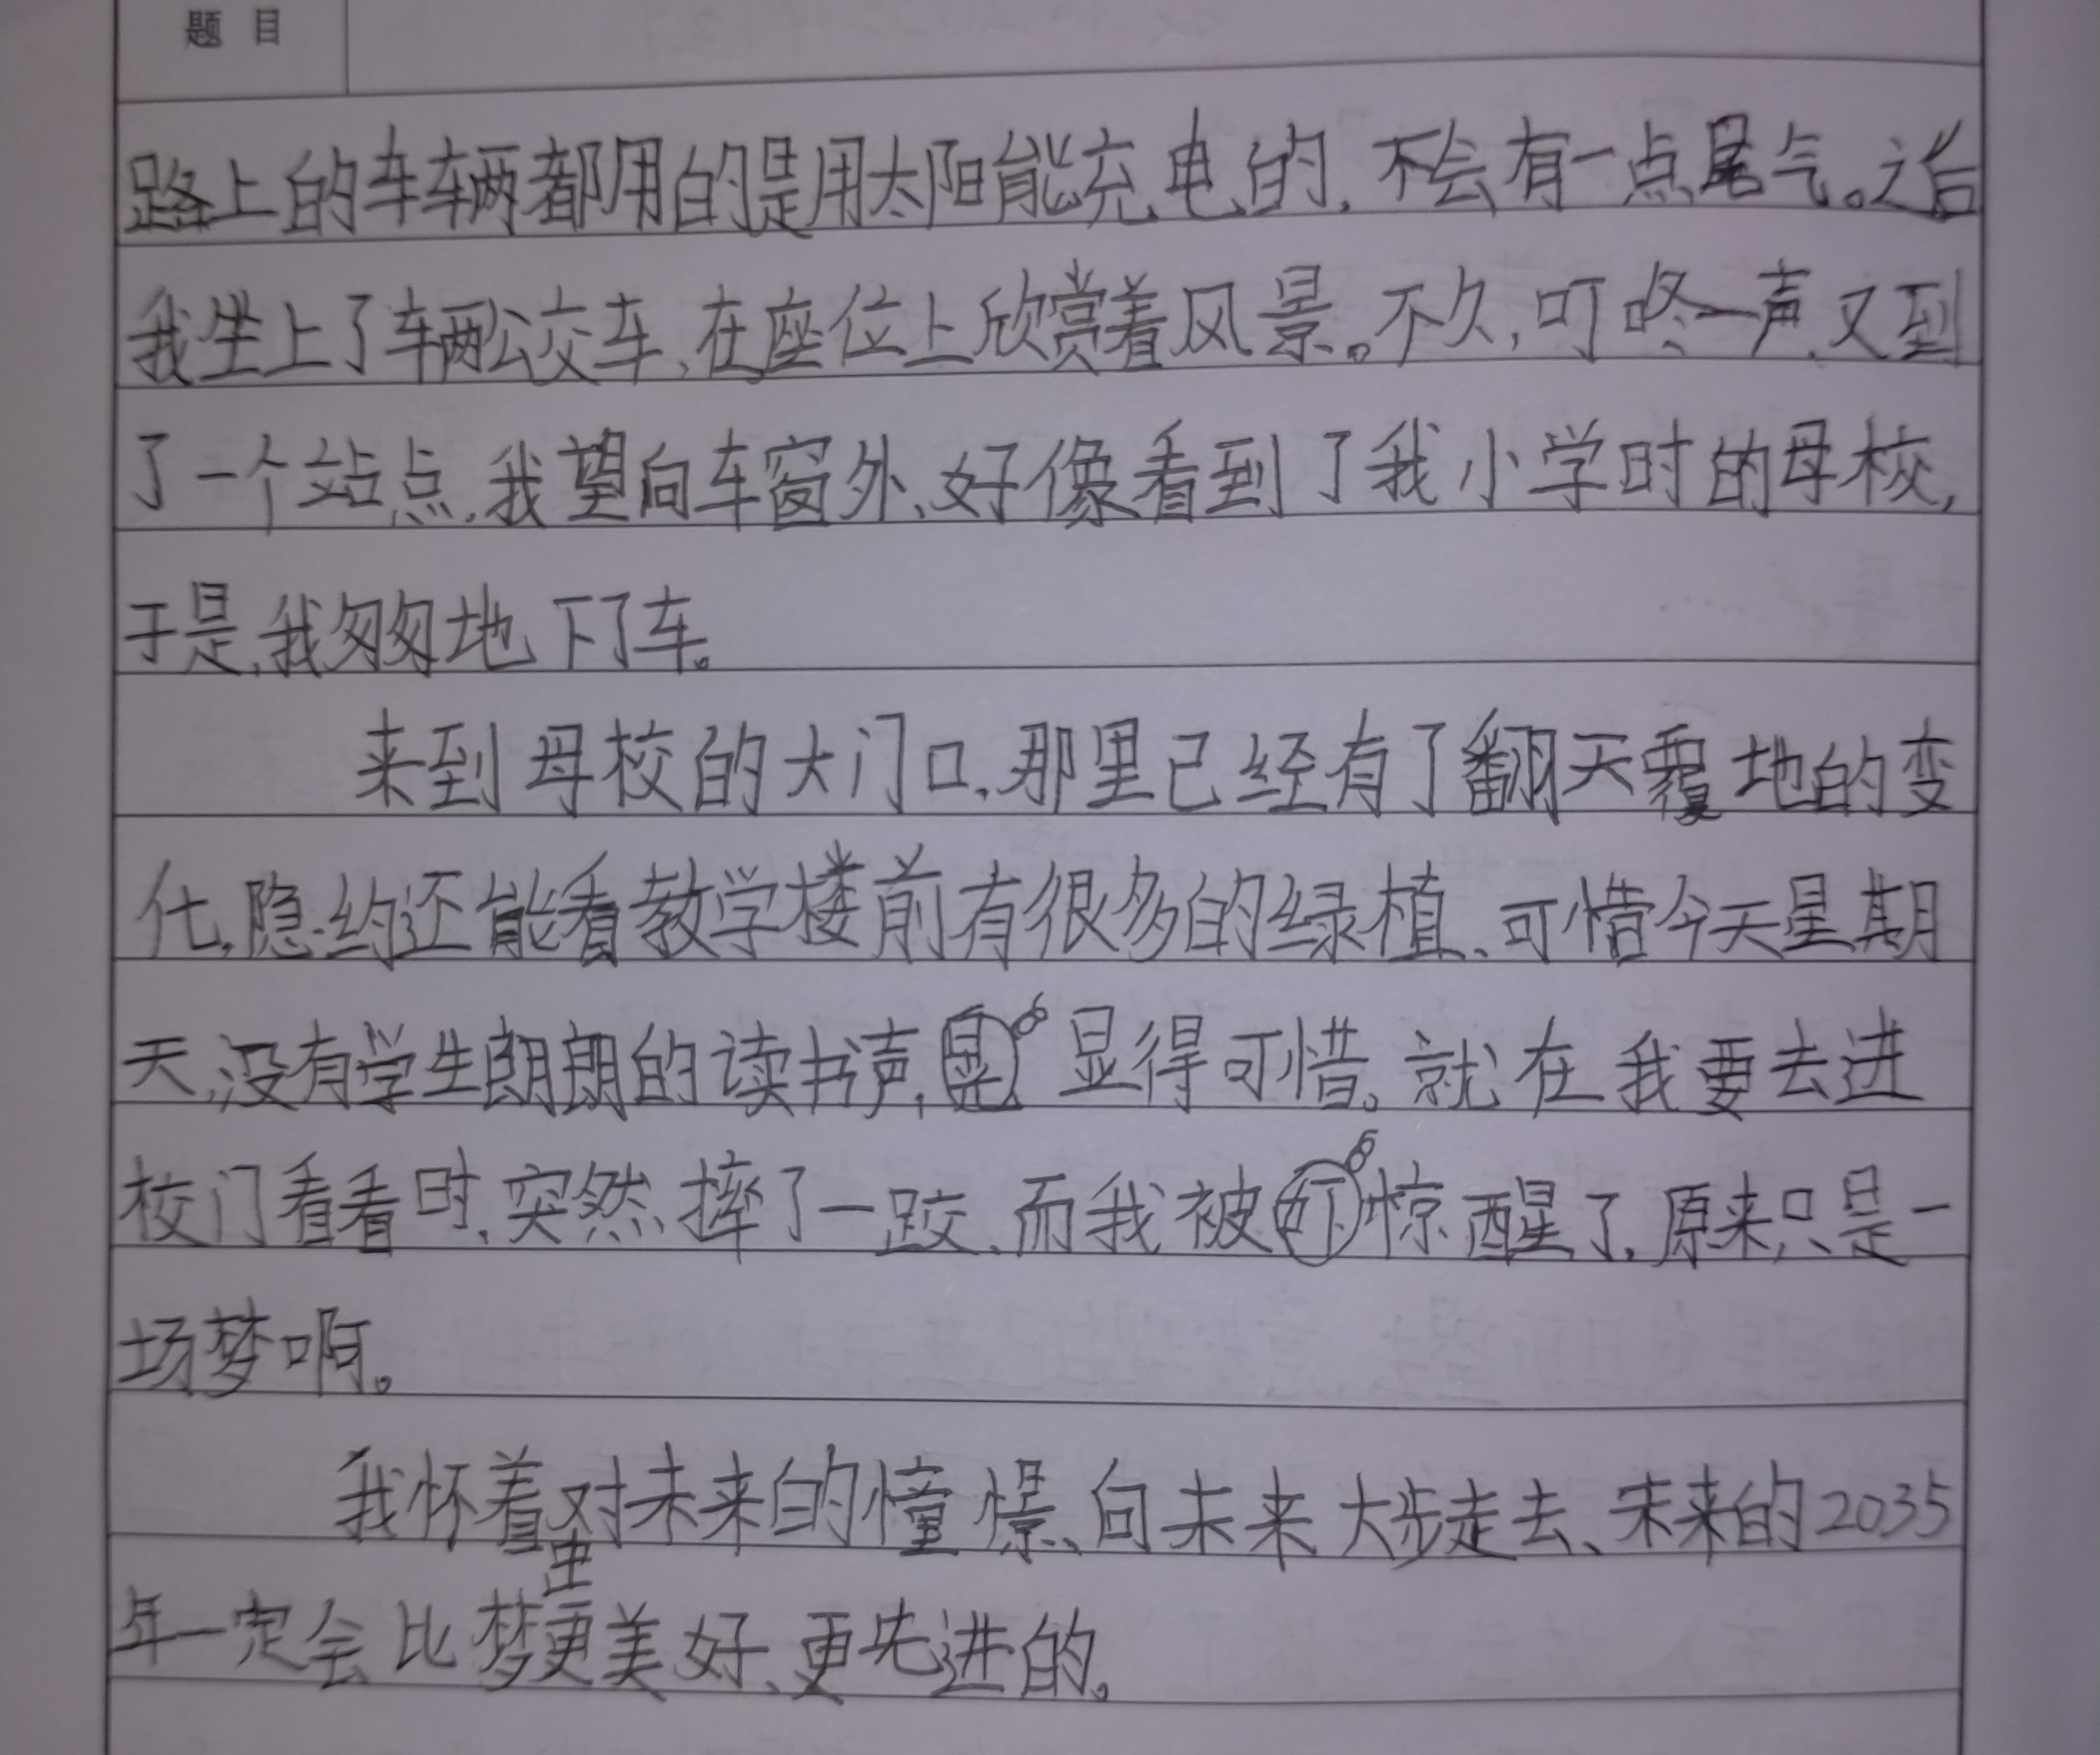 题目
路上的车辆都用的是用太阳能充电的,不会有一点尾气。之后
我坐上了辆公交车,在座位上欣赏着风景。不久,叮咚一声,又到
了一个站点,我望向车窗外,好像看到了我小学时的母校,
于是,我匆匆地下了车。
来到母校的大门口,那里已经有了翻天覆地的变
化,隐约还能看教学楼前有很多的绿植,可惜今天星期
天,没有学生朗朗的读书声,显得可惜。就在我要去进
校门看看时,突然,摔了一跤,而我被惊醒了,原来只是一
场梦啊。
我怀着对未来的憧憬,向未来大步走去,未来的2035
年一定会比梦里更美好,更先进的。